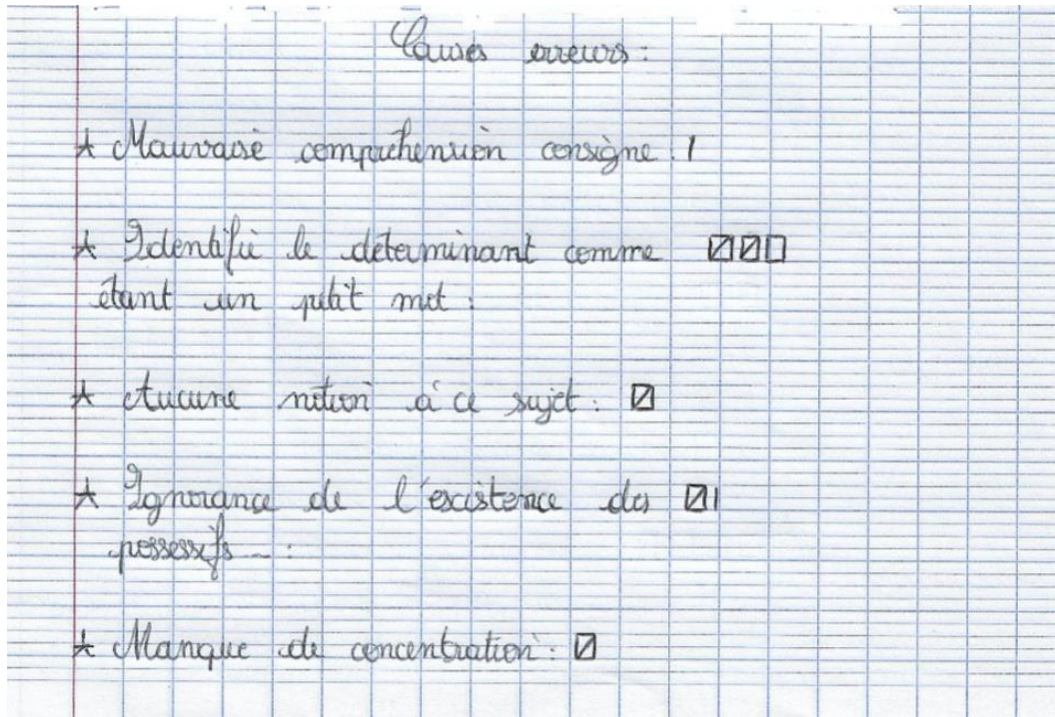 Causes erreurs :
★ Mauvaise compréhension consigne : 1
★ Identifié le déterminant comme
étant un petit mot :
★ Aucune notion à ce sujet :
★ Ignorance de l'existence des
possessifs ... :
★ Manque de concentration :